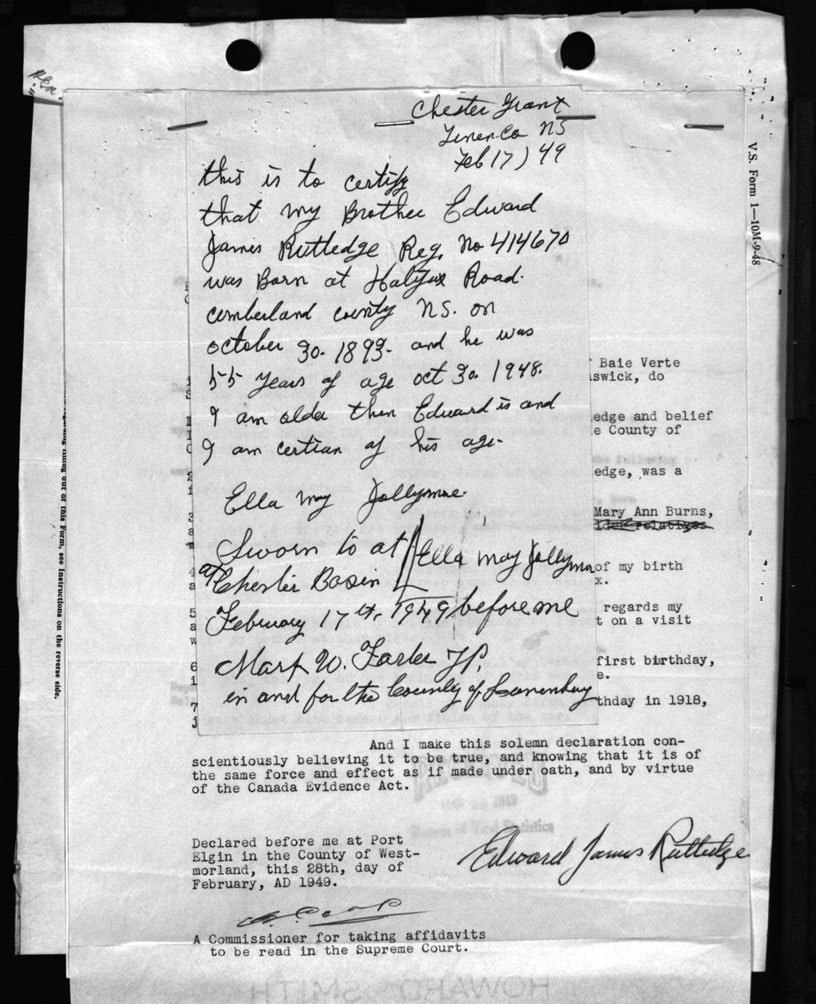 Chester Grant
Lunen. Co NS
Feb 17) 49
this is to certify
that my Brother Edward
James Rutledge Reg. No 414670
was Born at Halifax Road.
cumberland county NS. on
october 30. 1893. and he was
55 years of age oct 30. 1948.
I am older then Edward is and
I am certian of his age.
Ella may Jollymore
Sworn to at
at Chester Basin
Ella may Jollymore
February 17th, 1949 before me
Mark W. JP.
in and for the County of Lunenburg
V.S. Form 1—10M-9-48
Baie Verte
swick, do
edge and belief
e County of
edge, was a
Mary Ann Burns,
of my birth
x.
regards my
t on a visit
first birthday,
e.
thday in 1918,
And I make this solemn declaration con-
scientiously believing it to be true, and knowing that it is of
the same force and effect as if made under oath, and by virtue
of the Canada Evidence Act.
Declared before me at Port
Elgin in the County of West-
morland, this 28th, day of
February, AD 1949.
Edward James Rutledge
A Commissioner for taking affidavits
to be read in the Supreme Court.
out of this Form, see Instructions on the reverse side.
HOWARD SMITH